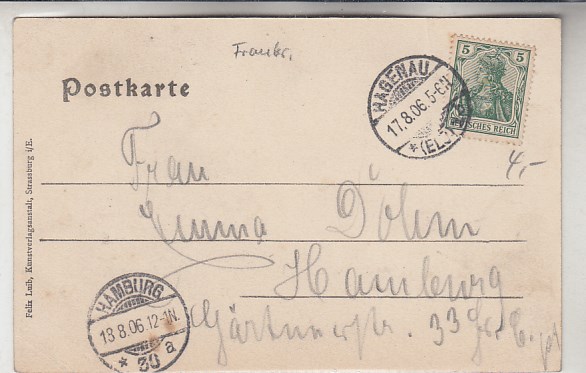 Postkarte
HAGENAU
17.8.06.5-6N.
* (ELS)
5 5
DEUTSCHES REICH
4,-
Frau
Emma Döhm
Hamburg
Gärtnerstr. 33
HAMBURG
18.8.06.12-1N.
* 30 a
Felix Luib, Kunstverlagsanstalt, Strassburg i/E.